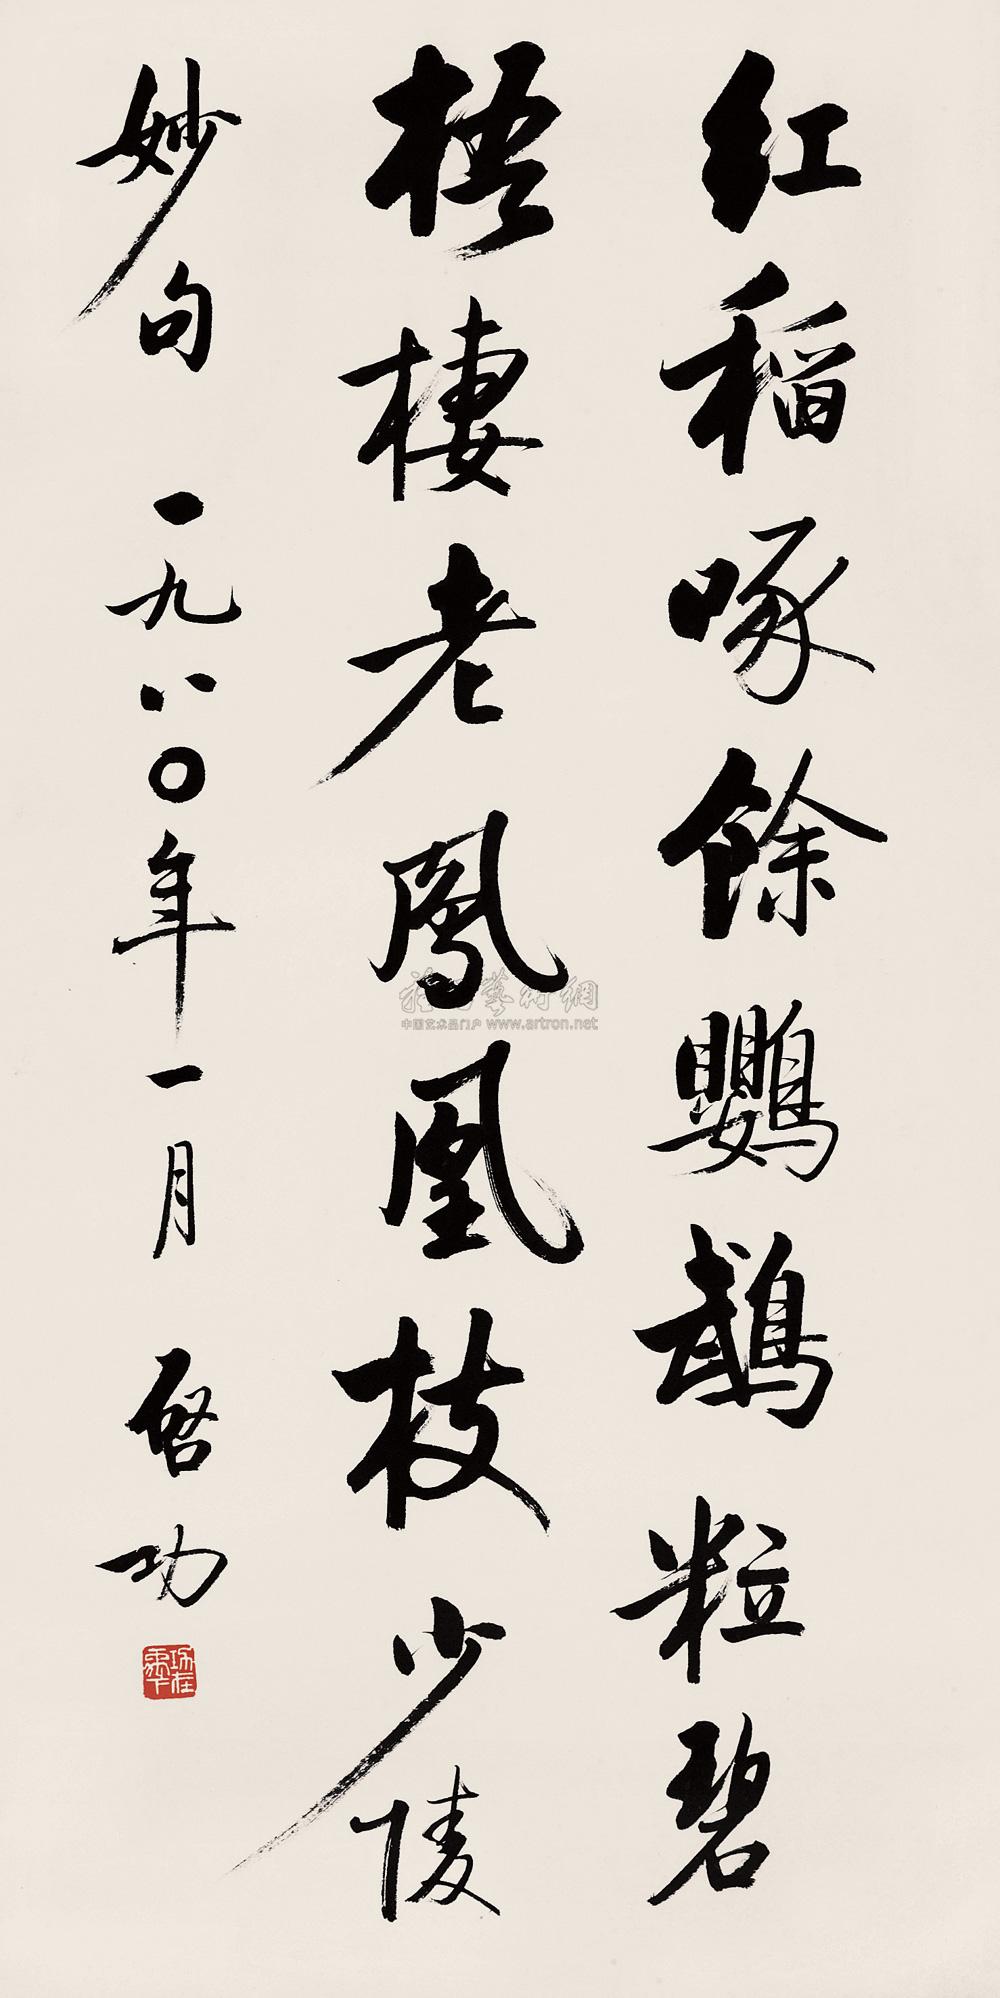 红稻啄餘鸚鵡粒碧
梧棲老鳳凰枝少陵
妙句 一九八〇年一月 啓功
藝術網
中国艺术品门户 www.artron.net